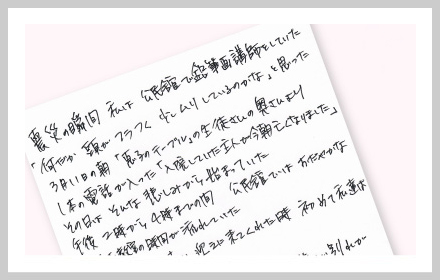 震災の瞬間 私は 公民館で鉛筆画講師をしていた
「何だか 頭が フラフラ 少しムリしているのかな」と思った
3月11日の朝 「 のテーブル」の生徒さんの奥さまより
1本の電話が入った「入院していた主人が今朝亡くなりました」
その日は そんな悲しみから始まっていた
午後 2時から 4時までの間 公民館では おだやかな
教室の時間が流れていた
に来てくれた時 初めて私達は
別れが